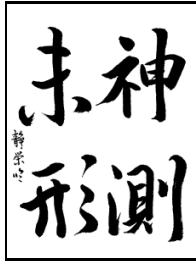 神測
未形
静栄吟